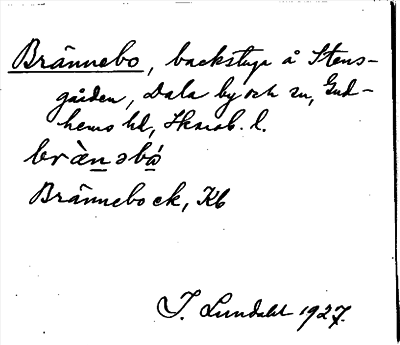 Brännebo, backstuga å Stens-
gården, Dala by och sn, Gud-
hems hd, Skarab. l.
brä̀nəbó
Brännebo ek, Kb
I. Lundahl 1927.